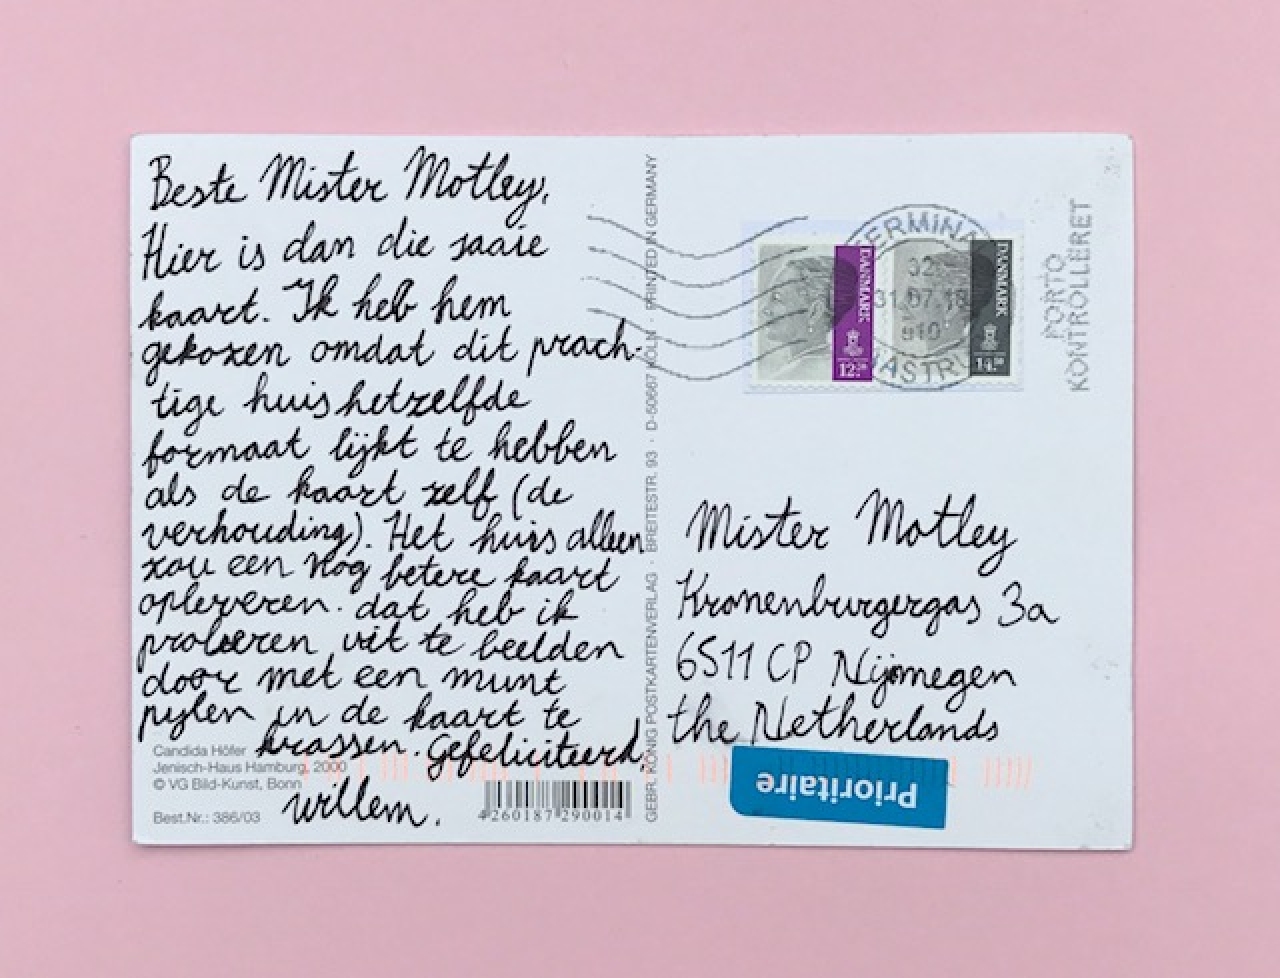 Beste Mister Motley,
Hier is dan die saaie
kaart. Ik heb hem
gekozen omdat dit prach-
tige huis hetzelfde
formaat lijkt te hebben
als de kaart zelf (de
verhouding). Het huis alleen
zou een nog betere kaart
opleveren. dat heb ik
proberen uit te beelden
door met een munt
pylen in de kaart te
krassen. Gefeliciteerd,
willem.
Candida Höfer
Jenisch-Haus Hamburg, 2000
© VG Bild-Kunst, Bonn
Best.Nr.: 386/03
4260187290014
GEBR. KÖNIG POSTKARTENVERLAG · BREITESTR. 93 · D-50667 KÖLN PRINTED IN GERMANY
DANMARK
12.00
DANMARK
14.50
ERMINA
32
31.07.18
910
ASTRU
PORTO
KONTROLLERET
Mister Motley
Kronenburgergas 3a
6511 CP Nijmegen
the Netherlands
Prioritaire